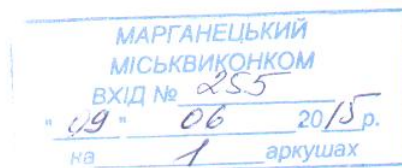 МАРГАНЕЦЬКИЙ
МІСЬКВИКОНКОМ
ВХІД № 255
"09" 06 2015р.
на 1 аркушах